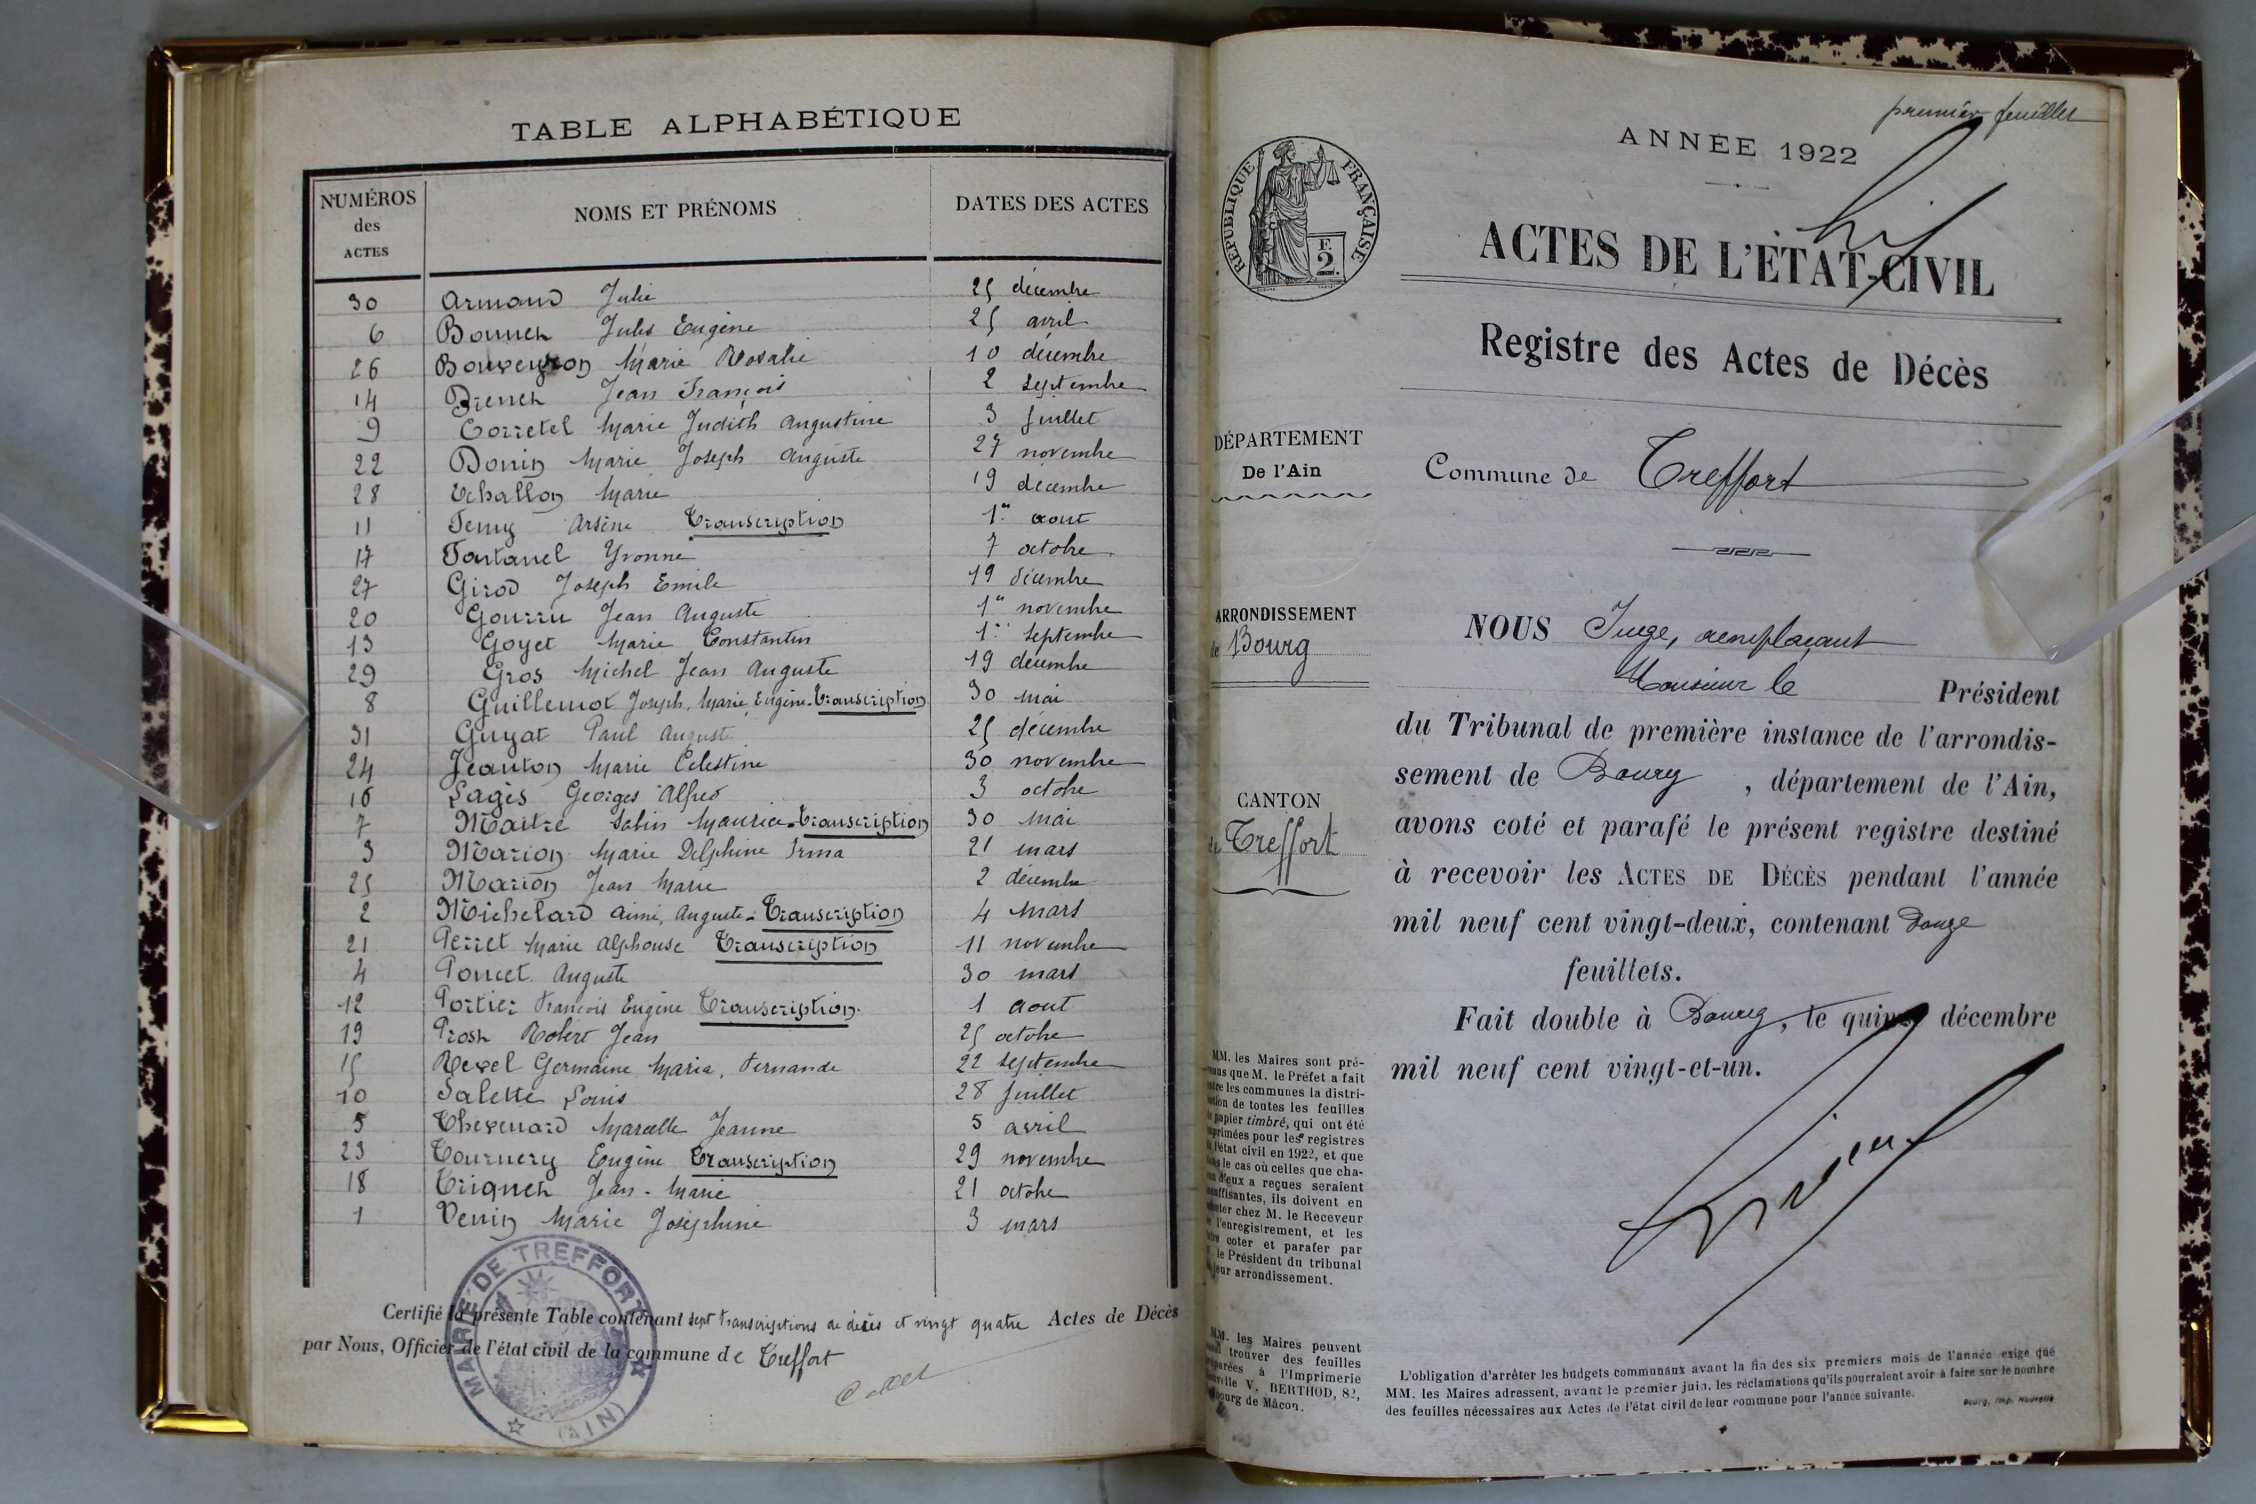 TABLE ALPHABÉTIQUE
NUMÉROS des ACTES NOMS ET PRÉNOMS DATES DES ACTES
30 Armand Julie 25 décembre
6 Bonnen Jules Eugène 25 avril
26 Bouveyron Marie Rosalie 10 décembre
14 Jean François 2 septembre
9 Corretel Marie Judith Augustine 3 Juillet
22 Donin Marie Joseph Auguste 27 novembre
28 Echallon Marie 19 décembre
11 Arsène Transcription 1er aout
17 Fontanel Yvonne 7 octobre
27 Girod Joseph Emile 19 décembre
20 Gourru Jean Auguste 1er novembre
13 Goyet Marie Constantin 1er septembre
29 Gros Michel Jean Auguste 19 décembre
8 Guillemot Joseph, Marie, Eugène-Transcription 30 mai
31 Guyat Paul August 25 décembre
24 Jeanton Marie Celestine 30 novembre
16 Lagès Georges Alfred 3 octobre
7 Maitre Sabin Maurice-Transcription 30 mai
3 Marion Marie Delphine Irma 21 mars
25 Marion Jean Marie 2 décembre
2 Michelard Aimé, Auguste-Transcription 4 mars
21 Perret Marie Alphonse Transcription 11 novembre
4 Poncet Auguste 30 mars
12 Portier François Eugène Transcription. 1 aout
19 Prost Robert Jean 25 octobre
15 Revel Germaine Maria, Fernande 22 septembre
10 Salette Louis 28 Juillet
5 Thevenard Marcelle Jeanne 5 avril
23 Tournery Eugène Transcription 29 novembre
18 Jean-Marie 21 octobre
1 Venin Marie Joséphine 3 mars
MAIRIE DE TREFFORT (AIN)
Certifié la présente Table contenant sept transcriptions de décès et vingt quatre Actes de Décès
par Nous, Officier de l'état civil de la commune de Treffort
premier feuillet
ANNÉE 1922
RÉPUBLIQUE FRANÇAISE
F. 2.
ACTES DE L'ÉTAT-CIVIL
Registre des Actes de Décès
DÉPARTEMENT
De l'Ain
Commune de Treffort
ARRONDISSEMENT
de Bourg
NOUS Juge, remplaçant
Monsieur le Président
du Tribunal de première instance de l'arrondis-
sement de Bourg, département de l'Ain,
CANTON
de Treffort
avons coté et parafé le présent registre destiné
à recevoir les ACTES DE DÉCÈS pendant l'année
mil neuf cent vingt-deux, contenant douze
feuillets.
Fait double à Bourg, le quinze décembre
mil neuf cent vingt-et-un.
MM. les Maires sont pré-
venus que M. le Préfet a fait
entre les communes la distri-
bution de toutes les feuilles
de papier timbré, qui ont été
imprimées pour les registres
de l'état civil en 1922, et que
dans le cas où celles que cha-
cun d'eux a reçues seraient
insuffisantes, ils doivent en
acheter chez M. le Receveur
de l'enregistrement, et les
faire coter et parafer par
M. le Président du tribunal
de leur arrondissement.
MM. les Maires peuvent
aussi trouver des feuilles
préparées à l'Imprimerie
Nouvelle V. BERTHOD, 82,
faubourg de Mâcon.
L'obligation d'arrêter les budgets communaux avant la fin des six premiers mois de l'année exige que
MM. les Maires adressent, avant le premier juin, les réclamations qu'ils pourraient avoir à faire sur le nombre
des feuilles nécessaires aux Actes de l'état civil de leur commune pour l'année suivante.
Bourg, Imp. Nouvelle